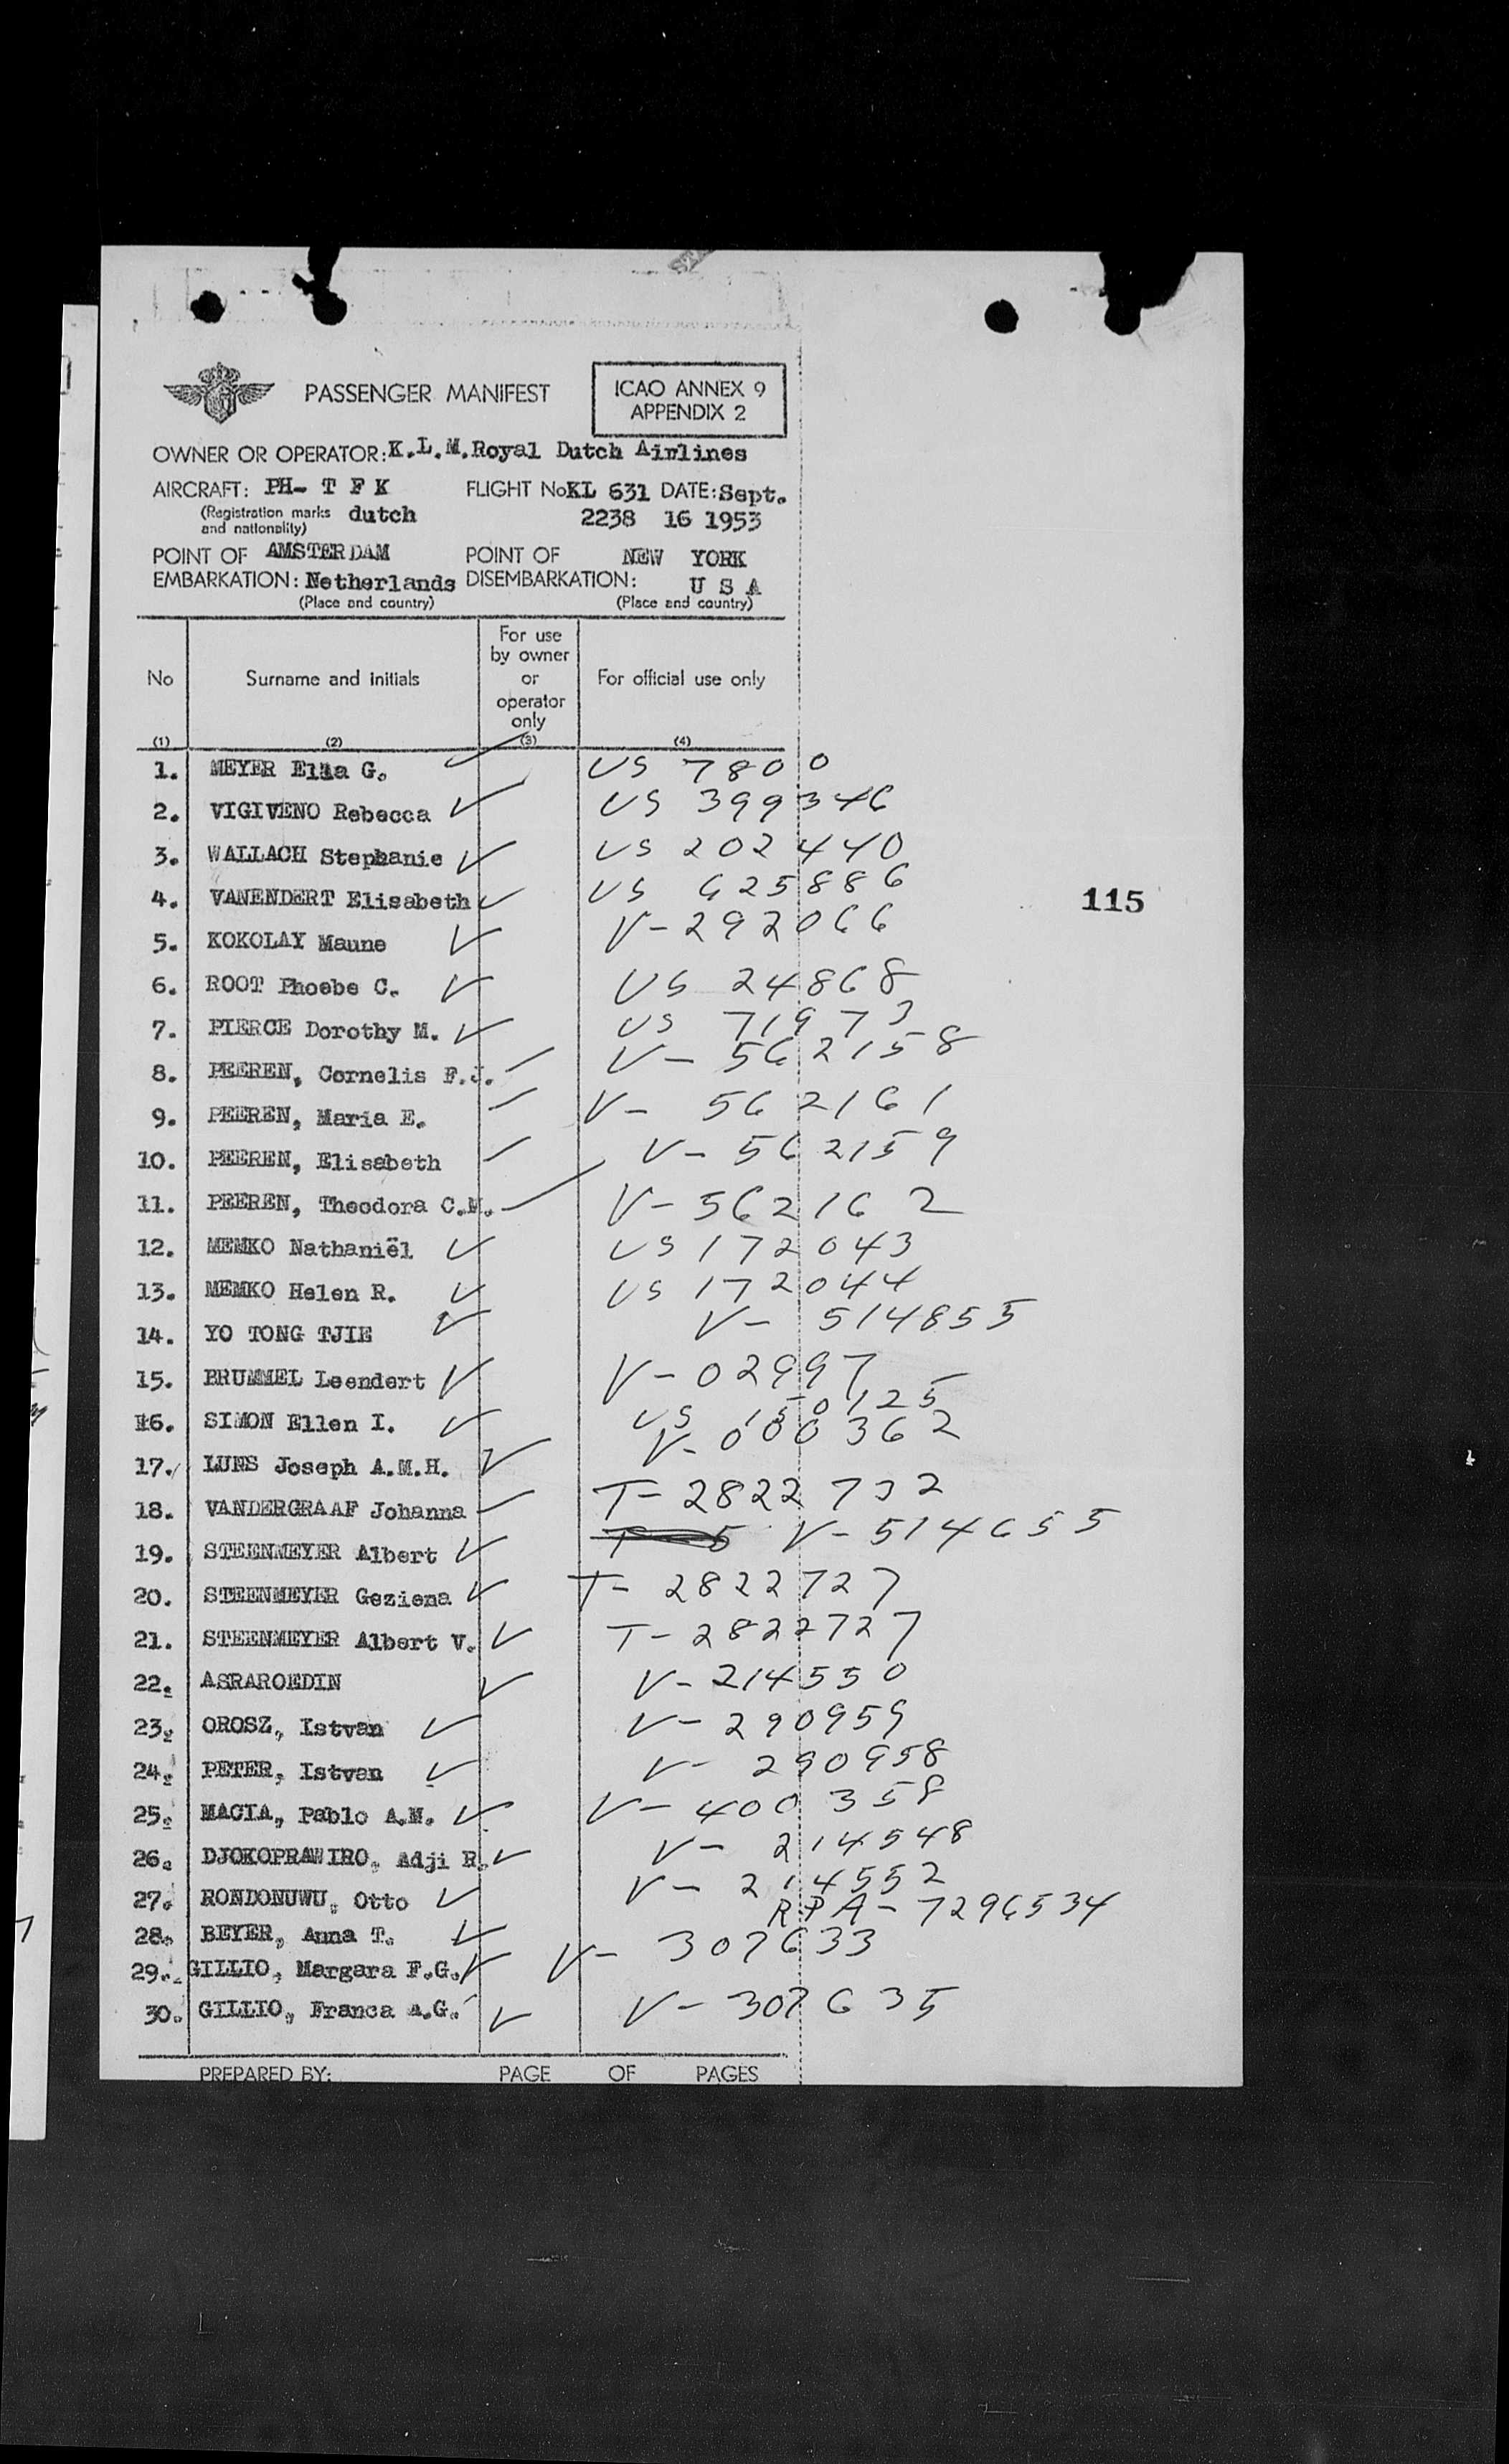 PASSENGER MANIFEST
ICAO ANNEX 9
APPENDIX 2
OWNER OR OPERATOR: K.L.M. Royal Dutch Airlines
AIRCRAFT: PH- T F K FLIGHT No KL 631 DATE: Sept.
(Registration marks and nationality) dutch 2238 16 1953
POINT OF EMBARKATION: AMSTERDAM Netherlands POINT OF DISEMBARKATION: NEW YORK U S A
(Place and country) (Place and country)
No Surname and initials For use by owner or operator only For official use only
(1) (2) (3) (4)
1. MEYER Ella G. US 7800
2. VIGIVENO Rebecca US 399346
3. WALLACH Stephanie US 202440
4. VANENDERT Elisabeth US 625886
5. KOKOLAY Maune V-292066
6. ROOT Phoebe C. US 24868
7. PIERCE Dorothy M. US 71973
8. PEEREN, Cornelis F.J. V-562158
9. PEEREN, Maria E. V-562161
10. PEEREN, Elisabeth V-562159
11. PEEREN, Theodora C.M. V-562162
12. MEMKO Nathaniël US 172043
13. MEMKO Helen R. US 172044
14. YO TONG TJIE V-514855
15. BRUMMEL Leendert V-02997
16. SIMON Ellen I. US 150125
17. LUNS Joseph A.M.H. V-000362
18. VANDERGRAAF Johanna T-2822732
19. STEENMEYER Albert V-514655
20. STEENMEYER Geziena T-2822727
21. STEENMEYER Albert V. T-2822727
22. ASRAROEDIN V-214550
23. OROSZ, Istvan V-290959
24. PETER, Istvan V-290958
25. MACIA, Pablo A.M. V-400358
26. DJOKOPRAWIRO, Adji R. V-214548
27. RONDONUWU, Otto V-214552
28. BEYER, Anna T. RPA-7296534
29. GILLIO, Margara F.G. V-307633
30. GILLIO, Franca A.G. V-307635
PREPARED BY: PAGE OF PAGES
115